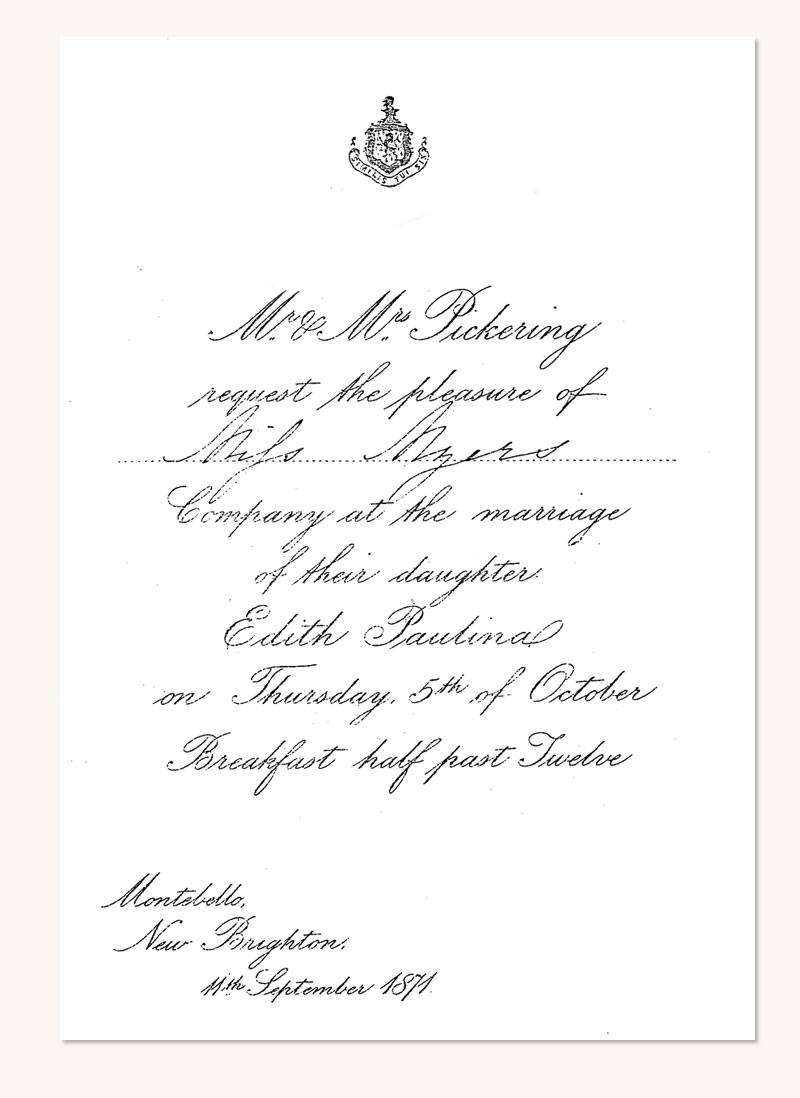 SIMILIS TUI SIS
Mr. & Mrs. Pickering
request the pleasure of
Miſs Myers
Company at the marriage
of their daughter
Edith Paulina
on Thursday, 5th of October
Breakfast half past Twelve
Montebello,
New Brighton.
11th September 1871.